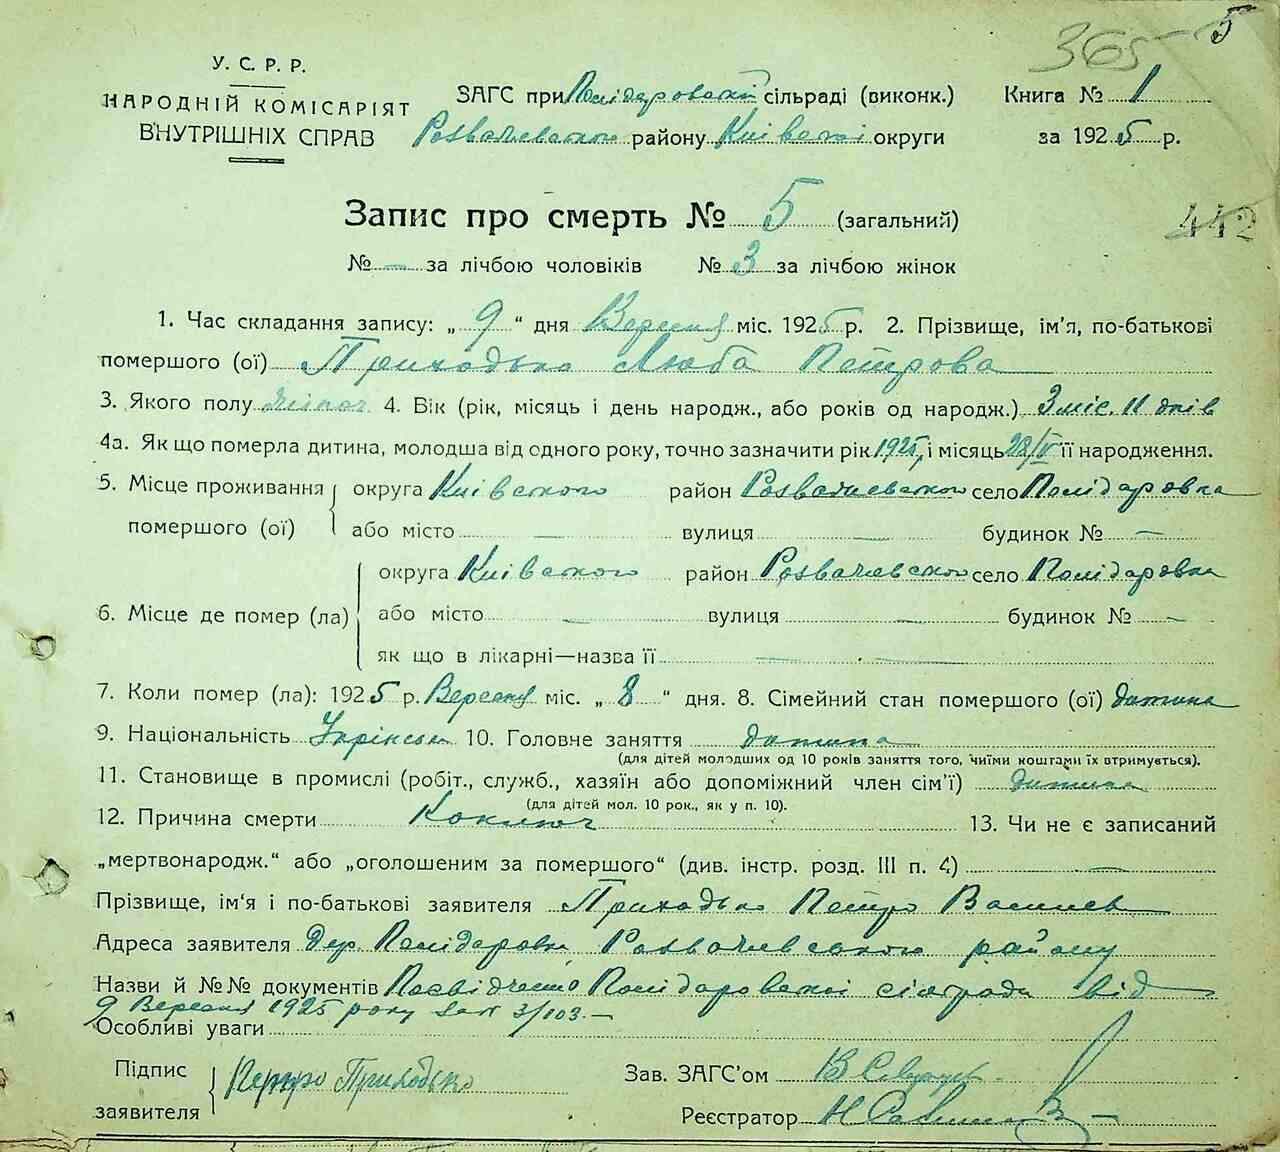 365 5
У. С. Р. Р.
НАРОДНІЙ КОМІСАРІЯТ
ВНУТРІШНІХ СПРАВ
ЗАГС при сільраді (виконк.)
району Київської округи
Книга № 1
за 1925 р.
Запис про смерть № 5 (загальний)
442
№ — за лічбою чоловіків № 3 за лічбою жінок
1. Час складання запису: „ 9 “ дня Вересня міс. 1925 р. 2. Прізвище, ім'я, по-батькові
помершого (ої) Приходько Люба Петрова
3. Якого полу 4. Вік (рік, місяць і день народж., або років од народж.) 3 міс. 11 днів
4а. Як що померла дитина, молодша від одного року, точно зазначити рік 1925, і місяць 28/V її народження.
5. Місце проживання помершого (ої) округа Київського район Розважевського село
або місто — вулиця — будинок № —
6. Місце де помер (ла) округа Київського район Розважевского село
або місто — вулиця — будинок № —
як що в лікарні—назва її —
7. Коли помер (ла): 1925 р. Вересня міс. „ 8 “ дня. 8. Сімейний стан помершого (ої) дитина
9. Національність 10. Головне заняття дитина
(для дітей молодших од 10 років заняття того, чиїми коштами їх отримується).
11. Становище в промислі (робіт., служб., хазяїн або допоміжний член сім'ї) дитина
(для дітей мол. 10 рок., як у п. 10).
12. Причина смерти Коклюш 13. Чи не є записаний
„мертвонародж.“ або „оголошеним за помершого“ (див. інстр. розд. III п. 4) —
Прізвище, ім'я і по-батькові заявителя Приходько Петро Васильев
Адреса заявителя Дер. Розважевського району
Назви й №№ документів сільради від
9 Вересня 1925 року 3/103.—
Особливі уваги
Підпис заявителя Петро Приходько
Зав. ЗАГС'ом
Реєстратор